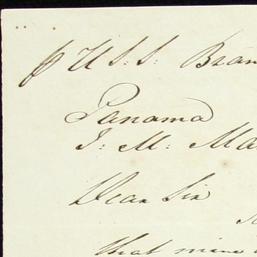 p U: S: S: Bran
Panama
J: M: Ma
Dear Sir
that mine